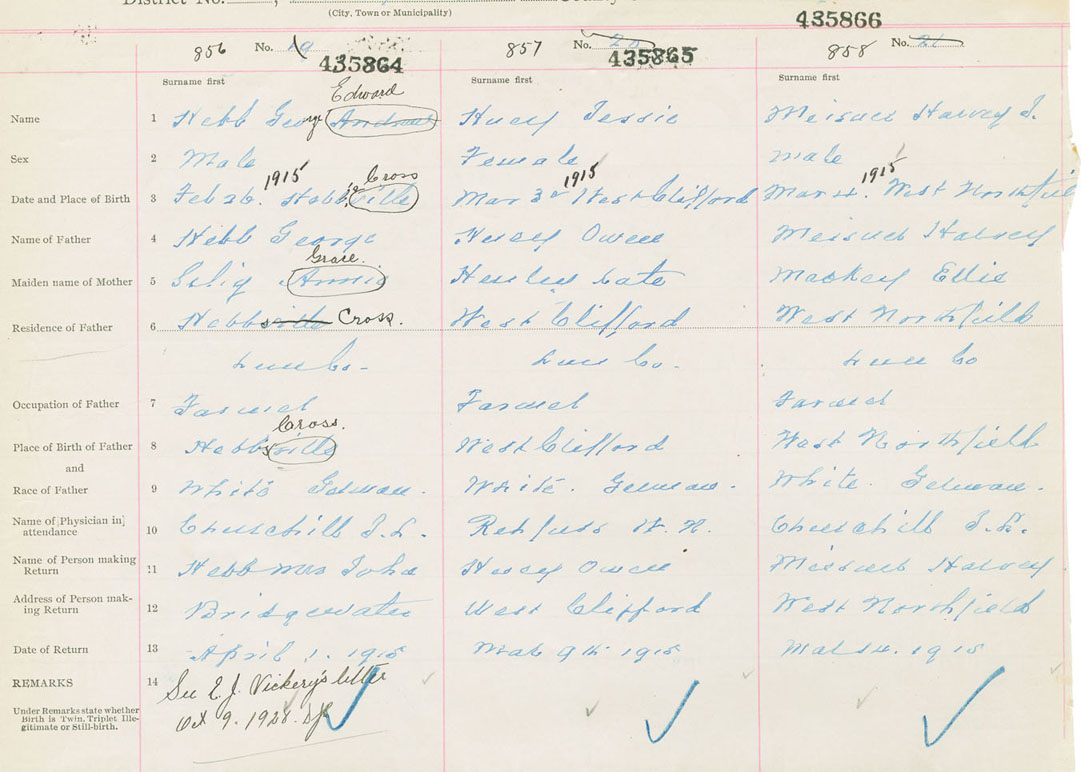 District No. County
(City, Town or Municipality)
435866
856 No. 19 857 No. 20 858 No. 21
435864 435865
Surname first Surname first Surname first
Edward
Name 1 Hebb George Andrew Huey Jessie Meisner Harvey J.
Sex 2 Male Female male
1915 Cross 1915 1915
Date and Place of Birth 3 Feb 26. Hebbville Mar 3rd West Clifford Mar 4. West Northfield
Name of Father 4 Hebb George Huey Owen Meisner Harvey
Grace.
Maiden name of Mother 5 Selig Annie Kate Mackay Ellie
Residence of Father 6 Hebbsville Cross. West Clifford West Northfield
Lun Co. Lun Co. Lun Co
Occupation of Father 7 Farmer Farmer Farmer
Cross.
Place of Birth of Father 8 Hebbsville West Clifford West Northfield
and
Race of Father 9 White German. White. German. White. German.
Name of [Physician in] attendance 10 Churchill Rehfuss W. N. Churchill
Name of Person making Return 11 Hebb Mrs John Huey Owen Meisner Harvey
Address of Person making Return 12 Bridgewater West Clifford West Northfield
Date of Return 13 April 1. 1915 Mar 9th 1915 Mar 14. 1915
REMARKS 14 See E. J. Vickery's letter
Under Remarks state whether Birth is Twin, Triplet Illegitimate or Still-birth. Oct 9. 1928.